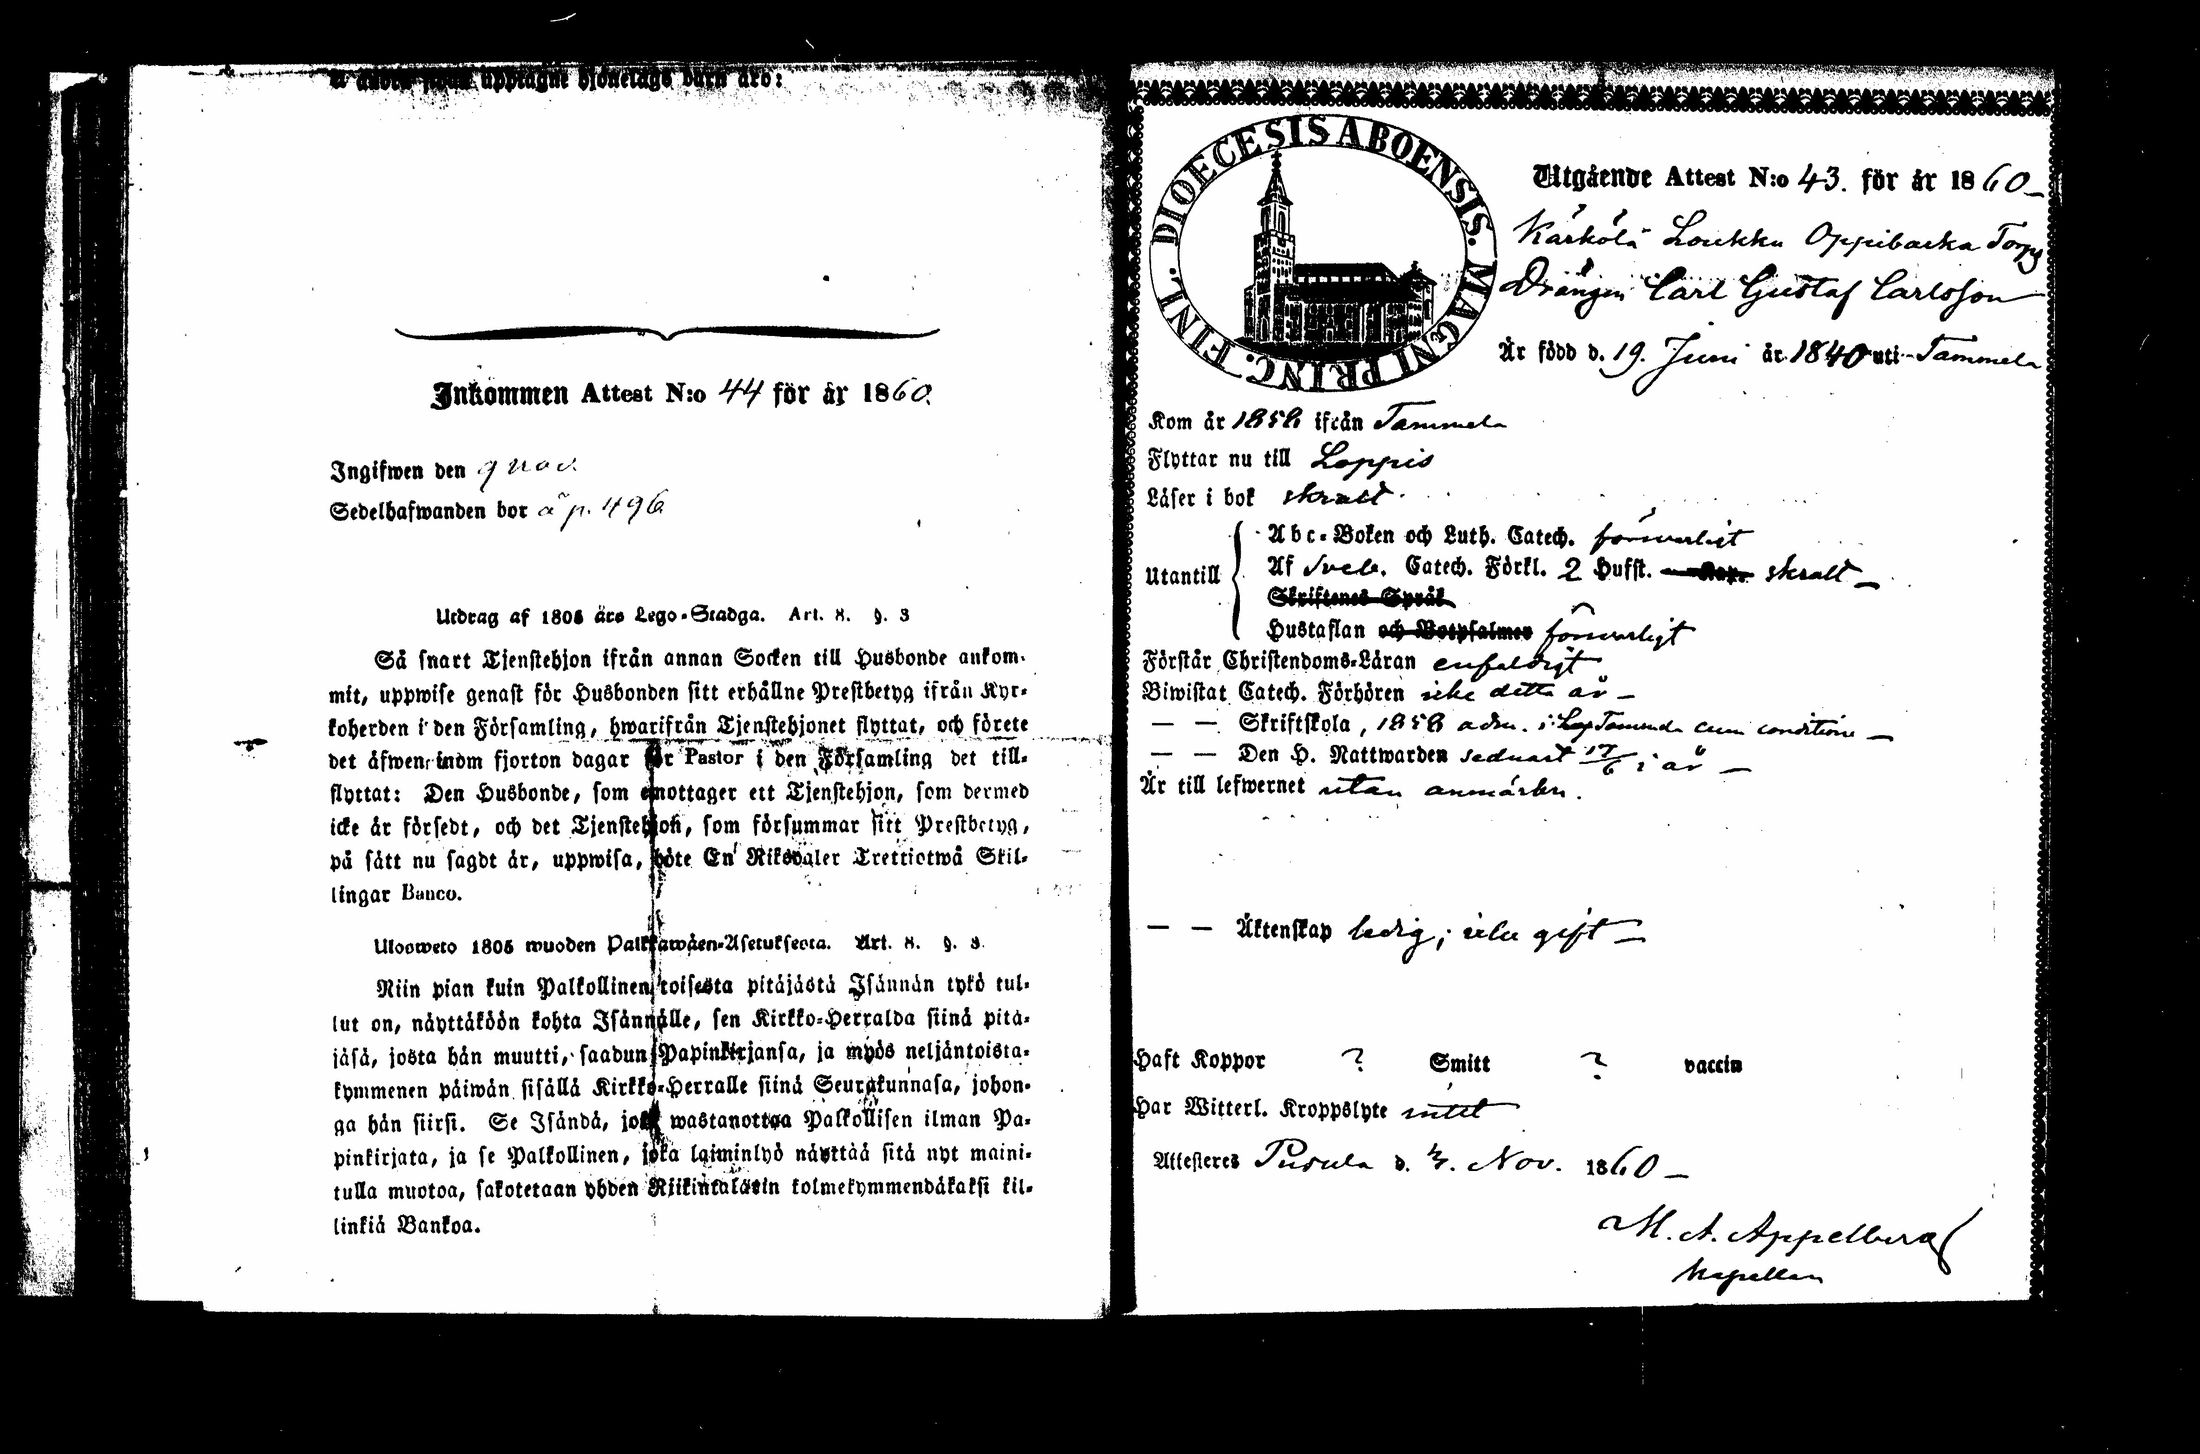 upptagne hjonelags barn äro:
Inkommen Attest N:o 44 för år 1860.
Ingifwen den 9 nov.
Sedelhafwanden bor å p. 496
Utdrag af 1805 års Lego-Stadga. Art. 8. §. 3
Så snart Tjenstehjon ifrån annan Socken till Husbonde ankom-
mit, uppwise genast för Husbonden sitt erhållne Prestbetyg ifrån Kyr-
koherden i den Församling, hwarifrån Tjenstehjonet flyttat, och förete
det äfwen inom fjorton dagar för Pastor i den Församling det till-
flyttat: Den Husbonde, som emottager ett Tjenstehjon, som dermed
icke är försedt, och det Tjenstehjon, som försummar sitt Prestbetyg,
på sätt nu sagdt är, uppwisa, böte En Riksdaler Trettiotwå Skil-
lingar Banco.
Ulosweto 1805 wuoden Palkkawäen-Asetuksesta. Art. 8. §. 3.
Niin pian kuin Palkollinen toisesta pitäjästä Isännän tykö tul-
lut on, näyttäköön kohta Isännälle, sen Kirkko-Herralda siinä pitä-
jäsä, josta hän muutti, saadun Papinkirjansa, ja myös neljäntoista-
kymmenen päiwän sisällä Kirkko-Herralle siinä Seurakunnasa, johon-
ga hän siirsi. Se Isändä, joka wastanottaa Palkollisen ilman Pa-
pinkirjata, ja se Palkollinen, joka laiminlyö näyttää sitä nyt maini-
tulla muotoa, sakotetaan yhden Riikintalarin kolmekymmendäkaksi kil-
linkiä Bankoa.
DIOECESIS ABOENSIS. MAGNI PRINC. FINL.
Utgående Attest N:o 43. för år 1860
Kärkölä Loukku Oppibacka Torp
Drängen Carl Gustaf Carlsson
Är född d. 19. Juni år 1840 uti Tammela
Kom år 1858 ifrån Tammela
Flyttar nu till Loppis
Läser i bok skralt
Utantill
Abc-Boken och Luth. Catech. försvarligt
Af Sveb. Catech. Förkl. 2 Hufst. Kap. skralt
Skriftenes Språk
Hustaflan och Botpsalmer försvarligt
Förstår Christendoms-Läran enfaldigt
Biwistat Catech. Förhören icke detta år
— — Skriftskola, 1858 adm. i Tammela cum conditione
— — Den H. Nattwarden sednast 17/6 i år
Är till lefwernet utan anmärkn.
— — Äktenskap ledig; icke gift
Haft Koppor ? Smitt ? vaccin
Har Witterl. Kroppslyte intet
Attesteres Pusula d. Nov. 1860
M. A. Appelberg
Kapellan